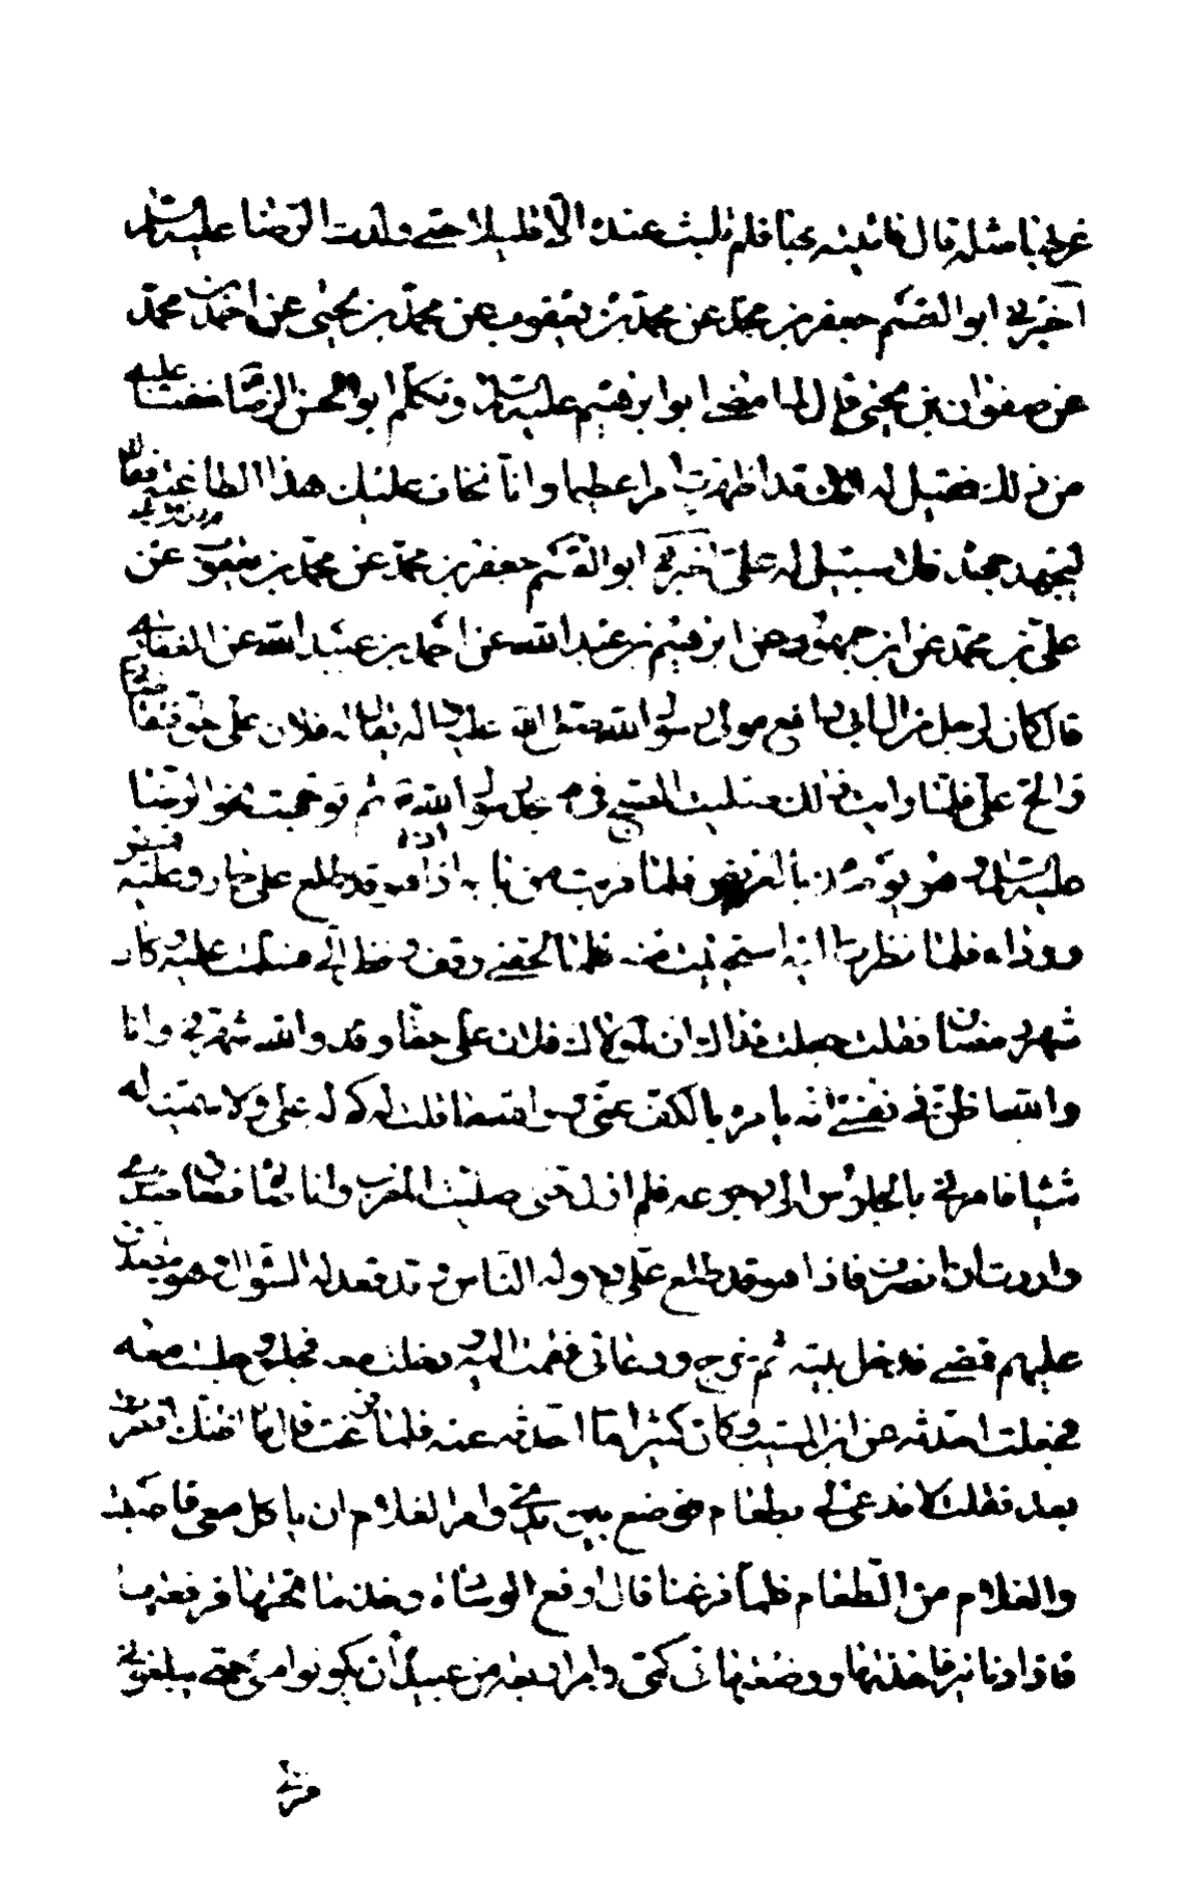 غربها مثله قال فاتيته بها فلم تلبث عنده الا قليلا حتى ولدت الرضا عليه السلام
اخبرني ابو القسم جعفر بن محمد عن محمد بن يعقوب عن محمد بن يحيى عن احمد بن محمد
عن صفوان بن يحيى قال لما مضى ابو ابرهيم عليه السلام وتكلم ابو الحسن الرضا خفنا عليه
من ذلك فقيل له انك قد اظهرت امرا عظيما وانا نخاف عليك هذا الطاغية فقال
ليجهد جهده فلا سبيل له علي اخبرني ابو القسم جعفر بن محمد عن محمد بن يعقوب عن
علي بن محمد عن ابن جمهور عن ابرهيم بن عبد الله عن احمد بن عبيد الله عن الغفاري
قال كان لرجل من آل ابي رافع مولى رسول الله صلى الله عليه وآله يقال له فلان علي حق فتقاضاني
والح علي فلما رايت ذلك صليت الصبح في مسجد رسول الله ثم توجهت نحو الرضا
عليه السلام وهو يومئذ بالعريض فلما قربت من بابه اذا هو قد طلع على حمار وعليه قميص
ورداء فلما نظرت اليه استحييت منه فلما لحقني وقف ونظر الي فسلمت عليه وكان
شهر رمضان فقلت جعلت فداك ان لمولاك فلان علي حقا وقد والله شهرني وانا
والله اظن في نفسي انه يامره بالكف عني ووالله ما قلت له كم له علي ولا سميت له
شيئا فامرني بالجلوس الى رجوعه فلم ازل حتى صليت المغرب وانا صائم فضاق صدري
واردت ان انصرف فاذا هو قد طلع علي وحوله الناس وقد قعد له السؤال وهو يتصدق
عليهم فمضى فدخل بيته ثم خرج ودعاني فقمت اليه ودخلت معه فجلس وجلست معه
فجعلت احدثه عن ابن المسيب وكان كثيرا ما احدثه عنه فلما فرغت قال ما اظنك افطرت
بعد فقلت لا فدعى لي بطعام فوضع بين يدي وامر الغلام ان ياكل معي فاصبت
والغلام من الطعام فلما فرغنا قال ارفع الوسادة وخذ ما تحتها فرفعتها
فاذا دنانير فاخذتها ووضعتها في كمي وامر اربعة من عبيده ان يكونوا معي حتى يبلغوني